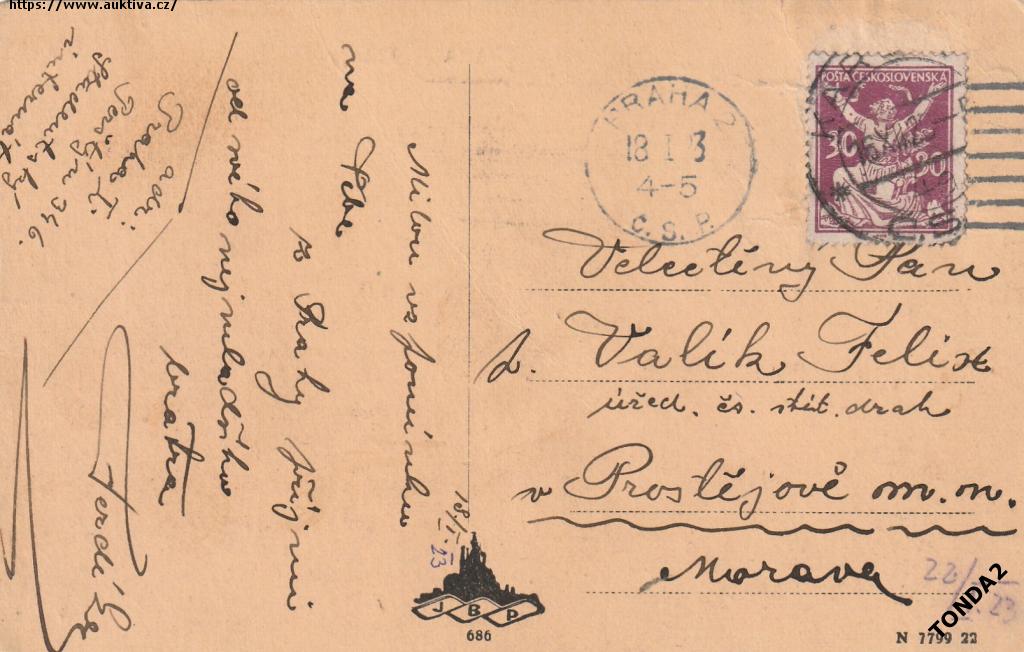 https://www.auktiva.cz/
Praha I.
Perštýn 346.
Studentský
internát
Milou vzpomínku
na Tebe
z Prahy přijmi
od svého nejmladšího
bratra
18/I. 23
JBP
686
PRAHA 2
18 I 23
4-5
Č.S.P.
POŠTA ČESKOSLOVENSKÁ
30 30
Velectěný Pan
Valík Felix
úřed. čs. stát. drah
v Prostějově m.n.
Morava
22/
23
TONDA2
N 7799 22